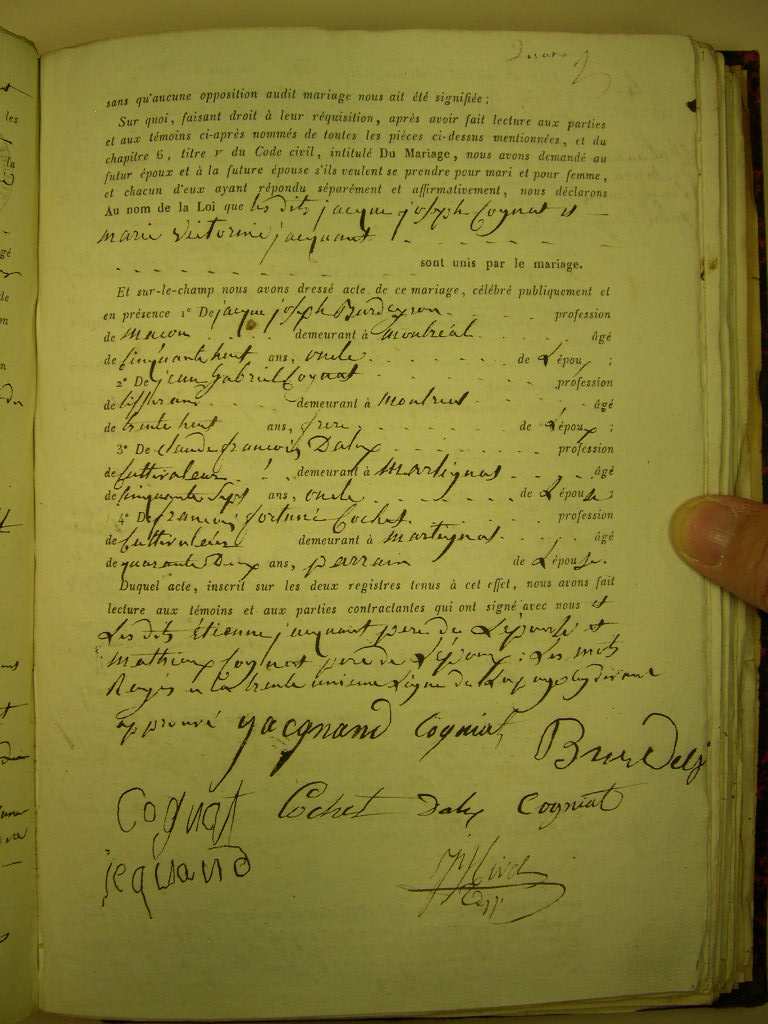 sans qu'aucune opposition audit mariage nous ait été signifiée ;
Sur quoi, faisant droit à leur réquisition, après avoir fait lecture aux parties
et aux témoins ci-après nommés de toutes les pièces ci-dessus mentionnées, et du
chapitre 6, titre v du Code civil, intitulé Du Mariage, nous avons demandé au
futur époux et à la future épouse s'ils veulent se prendre pour mari et pour femme,
et chacun d'eux ayant répondu séparément et affirmativement, nous déclarons
Au nom de la Loi que les dits jacque joseph Cognat et
marie Victorine jacquant
sont unis par le mariage.
Et sur-le-champ nous avons dressé acte de ce mariage, célébré publiquement et
en présence 1° De jacque joseph profession
de maçon demeurant à montréal âgé
de Cinquante huit ans, oncle de L'époux ;
2° De jean gabriel Cognat profession
de demeurant à montreal âgé
de trente huit ans, frere de L'époux ;
3° De claude francois Dalex profession
de Cultivateur demeurant à martignat âgé
de Cinquante Sept ans, oncle de L'épouse ;
4° De francois fortuné Cochet profession
de Cultivateur demeurant à martignat âgé
de quarante Deux ans, parrain de L'épouse.
Duquel acte, inscrit sur les deux registres tenus à cet effet, nous avons fait
lecture aux témoins et aux parties contractantes qui ont signé avec nous et
Les dits Étienne jacquant pere de L'épouse et
Mathieu Cognat pere de L'époux : Les mots
Rayés a la trente unieme Ligne de La page
approuvé yacqnand Cogniat
Cognat Cochet Dalex Cogniat
jeqnand